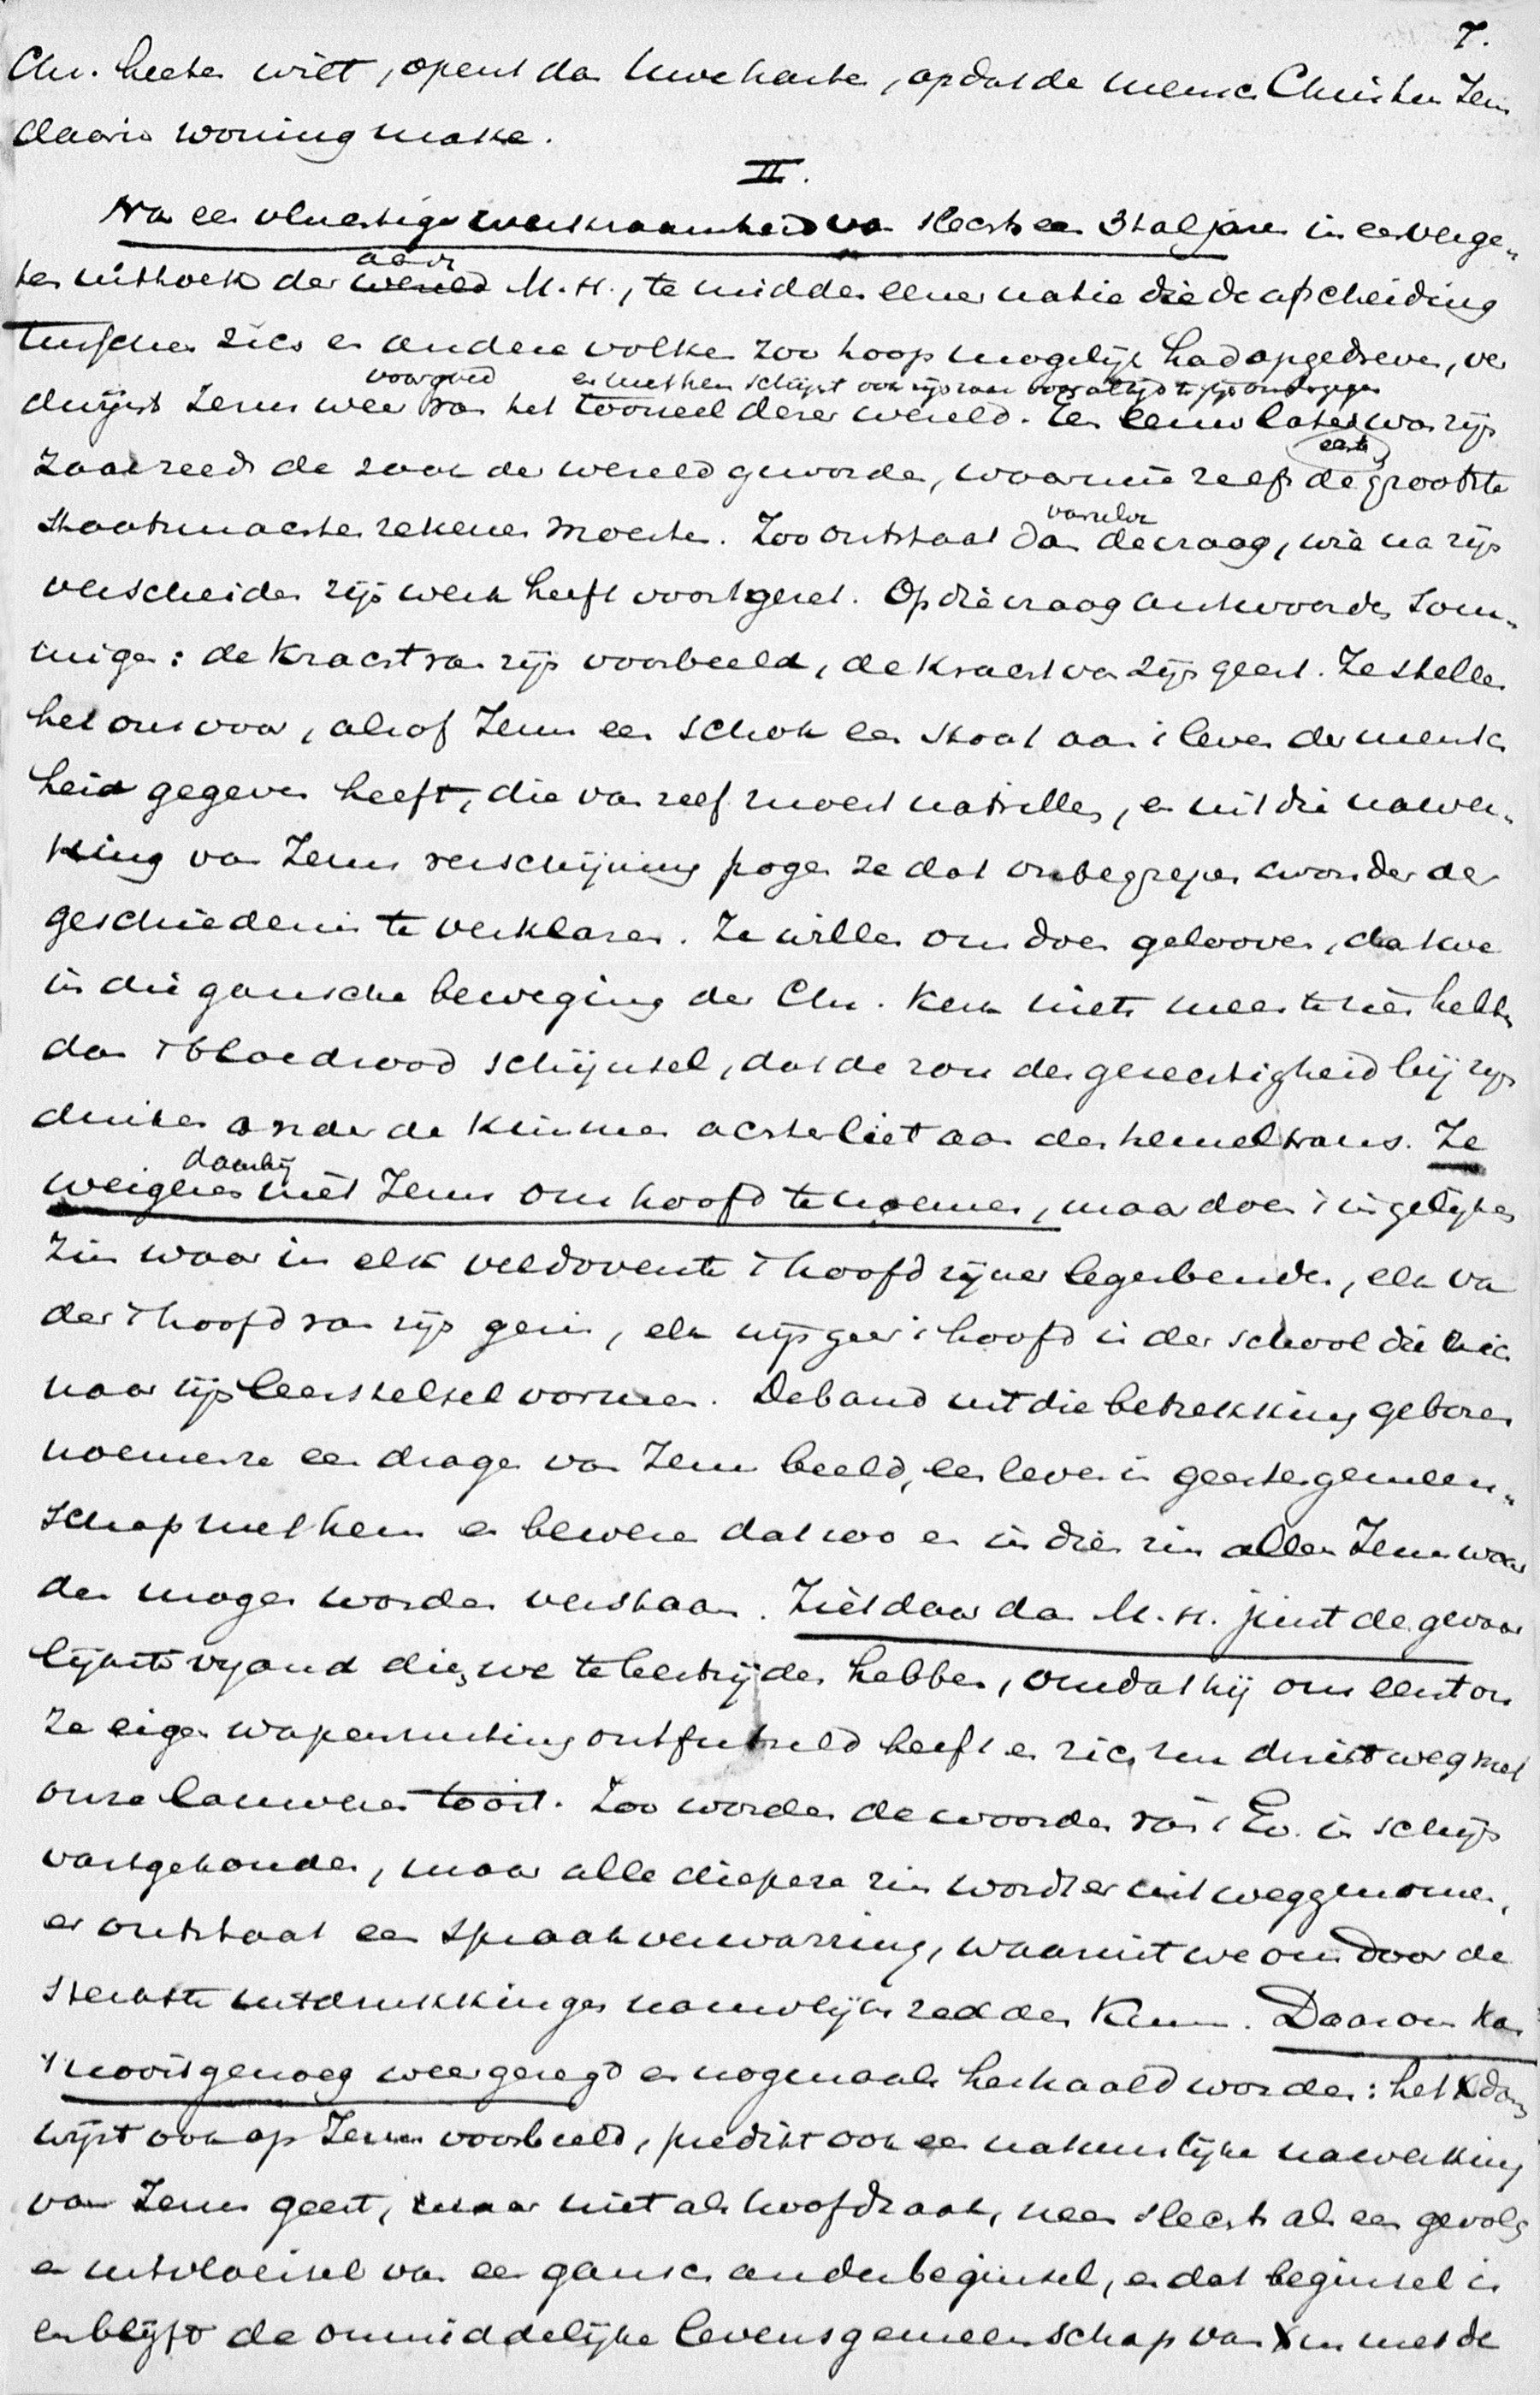 7.
Chr. heeten wilt, opent dan Uwe harten, opdat de mensch Christus Jezus
daarin woning make.
II.
Na een vluchtige werkzaamheid van slechts een 3tal jaren in een verge-
ten uithoek der aarde M.H., te midden eener natie die de afscheiding
tusschen zich en andere volken zoo hoog mogelijk had opgedreven, ver
dwijnt Jezus weer voorgoed van het tooneel dezer wereld. en met hem schijnt ook zijn zaak voor altijd te zijn Een eeuw later was zijn
zaak reeds de zaak der wereld geworden, waarmee zelfs de eerste grootste
staatsmachten rekenen moesten. Zoo ontstaat dan vanzelve de vraag, wie na zijn
verscheiden zijn werk heeft voortgezet. Op die vraag antwoorden som-
migen: de kracht van zijn voorbeeld, de kracht van zijn geest. Ze stellen
het ons voor, alsof Jezus een schok een stoot aan 't leven der mensch
heid gegeven heeft, die van zelf moest natrillen, en uit die nawer-
king van Jezus verschijning pogen ze dat onbegrepen wonder der
geschiedenis te verklaren. Ze willen ons doen gelooven, dat we
in die gansche beweging der Chr. Kerk niets meer te zien hebben
dan 't bloedrood schijnsel, dat de zon der gerechtigheid bij zijn
duiken onder de kimmen achterliet aan den hemeltrans. Ze
weigeren daarbij niet Jezus ons hoofd te noemen, maar doen 't in gelijken
zin waar in elk veldoverste 't hoofd zijner legerbenden, elk va
der 't hoofd van zijn gezin, elk wijsgeer 't hoofd is der school die zich
naar zijn leerstelsel vormen. De band uit die betrekking geboren
noemen ze een dragen van Jezus beeld, een leven in geestesgemeen-
schap met hem en beweren dat zoo en in dien zin alleen Jezus woor
den mogen worden verstaan. Ziet daar dan M.H. juist de gevaar
lijkste vijand dien we te bestrijden hebben, omdat hij ons eerst on
ze eigen wapenrusting ontfutseld heeft en zich nu driestweg met
onze lauweren tooit. Zoo worden de woorden van 't Ev. in schijn
vastgehouden, maar alle diepere zin wordt er uit weggenomen,
er ontstaat een spraakverwarring, waaruit we ons door de
sterkste uitdrukkingen nauwlijks redden kunnen. Daarom kan
't nooit genoeg weergezegd en nogmaals herhaald worden: het Xdom
wijst ook op Jezus voorbeeld, predikt ook een natuurlijke nawerking
van Jezus geest, maar niet als hoofdzaak, neen slechts als een gevolg
en uitvloeisel van een gansch ander beginsel, en dat beginsel is
en blijft de onmiddelijke levensgemeenschap van X en met de